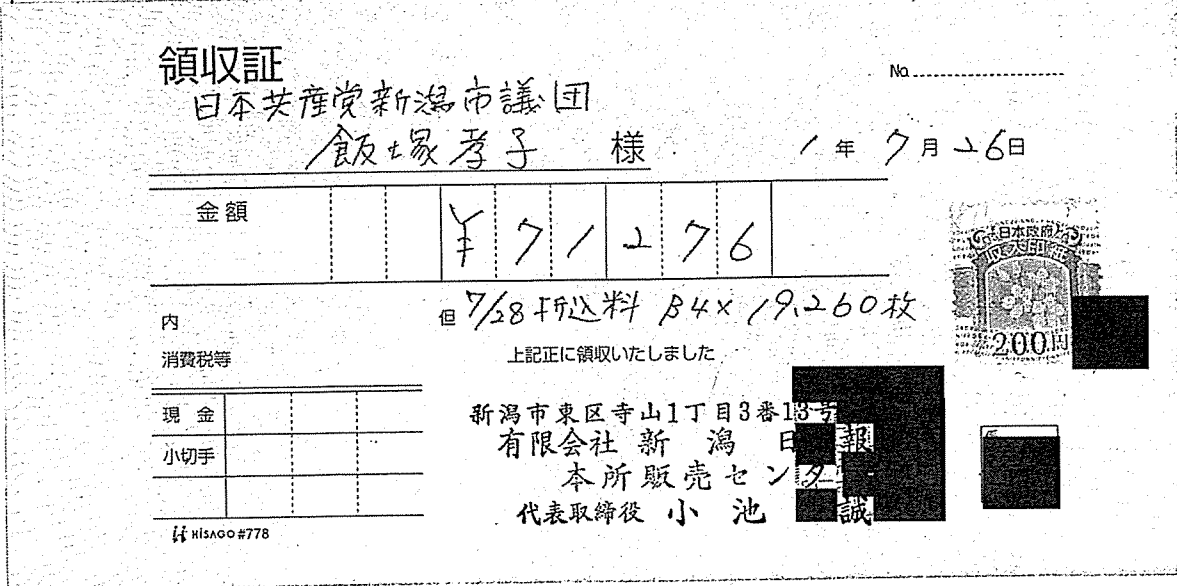 領収証
No.
日本共産党新潟市議団
飯塚孝子 様
1年7月26日
金額 ¥71276
但 7/28折込料 B4× 19,260枚
内
消費税等
上記正に領収いたしました
現金
小切手
日本政府
収入印紙
200円
新潟市東区寺山1丁目3番13号
有限会社 新潟日報
本所販売センター
代表取締役 小池 誠
HISAGO #778